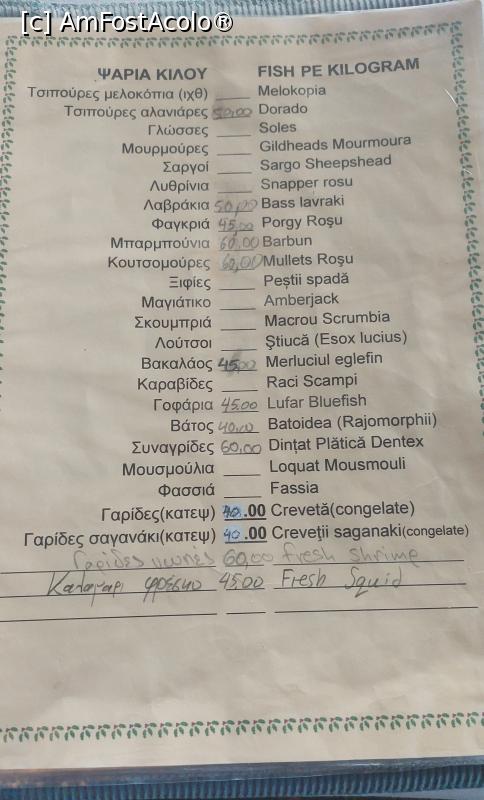 [c] AmFostAcolo®
ΨΑΡΙΑ ΚΙΛΟΥ FISH PE KILOGRAM
Τσιπούρες μελοκόπια (ιχθ) ____ Melokopia
Τσιπούρες αλανιάρες 50,00 Dorado
Γλώσσες ____ Soles
Μουρμούρες ____ Gildheads Mourmoura
Σαργοί ____ Sargo Sheepshead
Λυθρίνια ____ Snapper rosu
Λαβράκια 50,00 Bass lavraki
Φαγκριά 45,00 Porgy Roşu
Μπαρμπούνια 60,00 Barbun
Κουτσομούρες 60,00 Mullets Roşu
Ξιφίες ____ Peştii spadă
Μαγιάτικο ____ Amberjack
Σκουμπριά ____ Macrou Scrumbia
Λούτσοι ____ Ştiucă (Esox lucius)
Βακαλάος 45,00 Merluciul eglefin
Καραβίδες ____ Raci Scampi
Γοφάρια 45.00 Lufar Bluefish
Βάτος 40,00 Batoidea (Rajomorphii)
Συναγρίδες 60,00 Dințat Plătică Dentex
Μουσμούλια ____ Loquat Mousmouli
Φασσιά ____ Fassia
Γαρίδες(κατεψ) 40.00 Crevetă(congelate)
Γαρίδες σαγανάκι(κατεψ) 40.00 Creveții saganaki(congelate)
Γαρίδες 60,00 fresh shrimp
Καλαμαρι φρέσκο 45.00 Fresh Squid